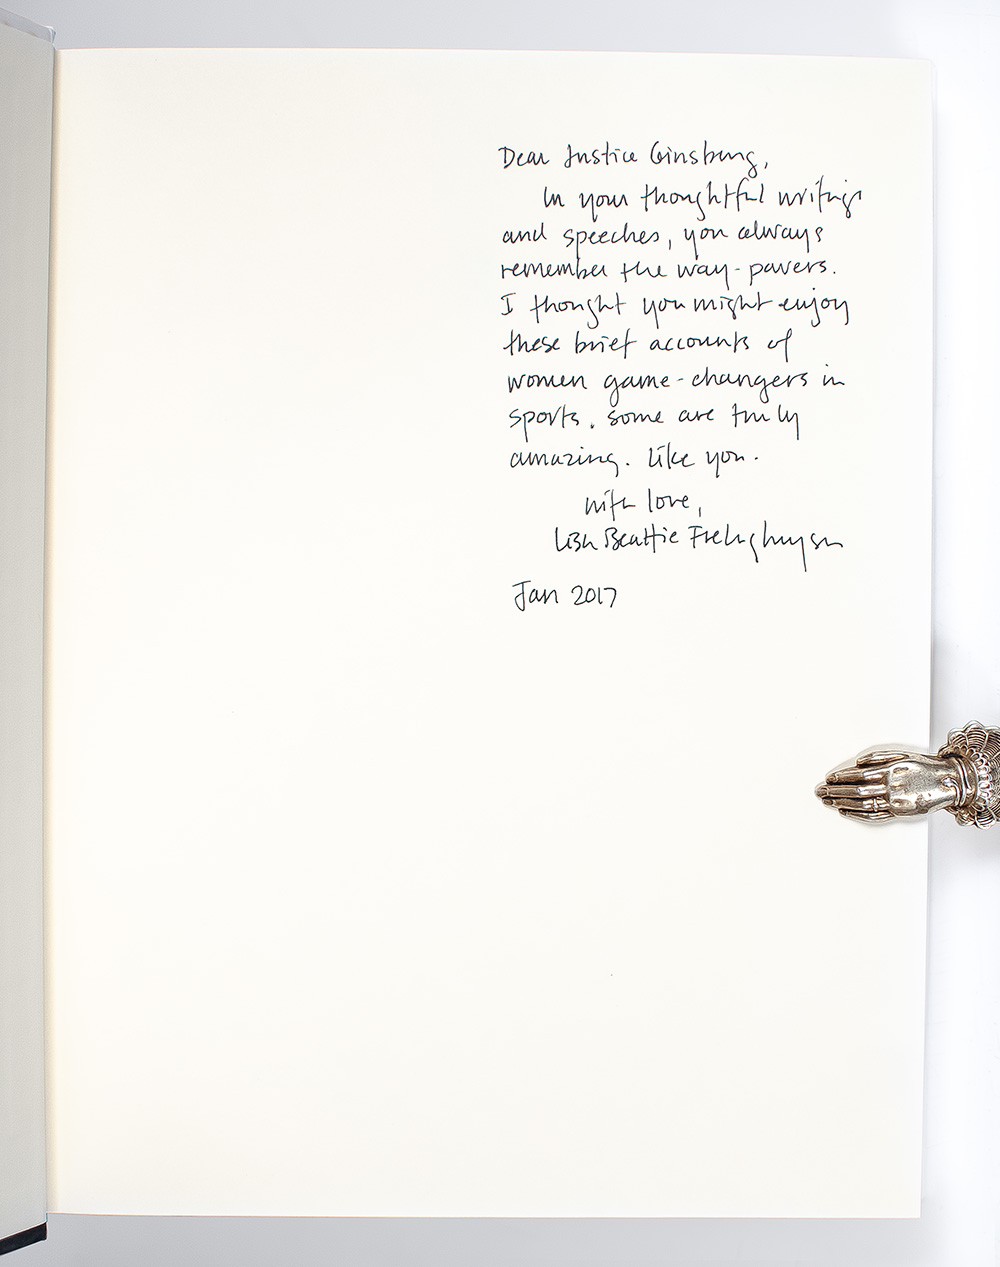 Dear Justice Ginsburg,
In your thoughtful writings
and speeches, you always
remember the way-pavers.
I thought you might enjoy
these brief accounts of
women game-changers in
sports. Some are truly
amazing. Like you.
With love,
Beattie Frelinghuysen
Jan 2017